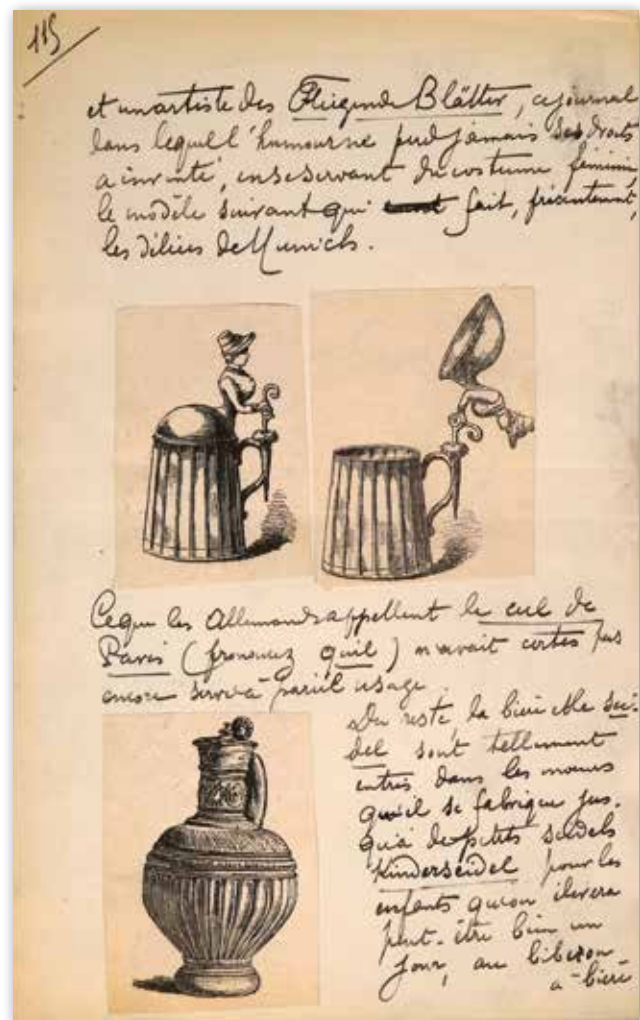 115
et un artiste des Fliegende Blätter, ce journal
dans lequel l'humour ne perd jamais ses droits
a inventé, en se servant du costume féminin,
le modèle suivant qui fait, présentement,
les délices de Munich.
Ce que les Allemands appellent le cul de
Paris (prononcez quil) n'avait certes pas
encore servi à pareil usage.
Du reste, la bière et le sei-
del sont tellement
entrés dans les mœurs
qu'il se fabrique jus-
qu'à de petits seidels
Kinderseidel pour les
enfants qu'on élèvera
peut-être bien un
jour, au biberon
à-bière